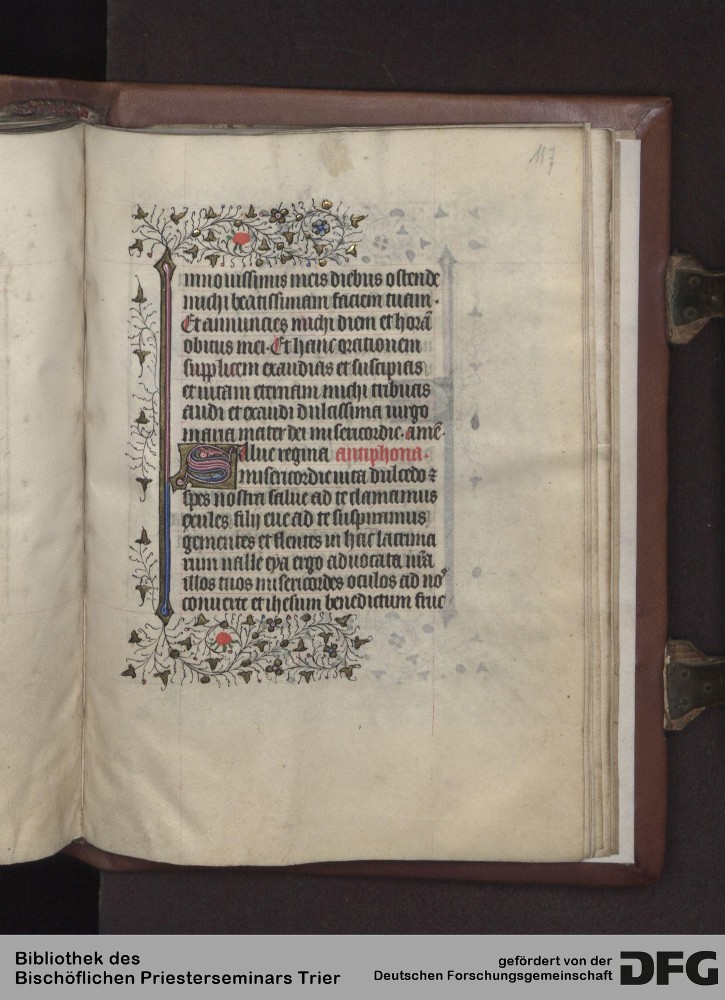 117
in nouissimis meis diebus ostende
michi beatissimam faciem tuam.
Et annuncies michi diem et horā
obitus mei. Et hanc orationem
supplicem exaudias et suscipias
et uitam eternam michi tribuas
audi et exaudi dulcissima uirgo
maria mater dei misericordie. amē.
Salue regina antiphona.
misericordie uita dulcedo ⁊
spes nostra salue ad te clamamus
exules filij eue ad te suspiramus
gementes et flentes in hac lacrima
rum ualle eya ergo aduocata nr̄a
illos tuos misericordes oculos ad noꝰ
conuerte et ihesum benedictum fruc
Bibliothek des
Bischöflichen Priesterseminars Trier
gefördert von der
Deutschen Forschungsgemeinschaft
DFG